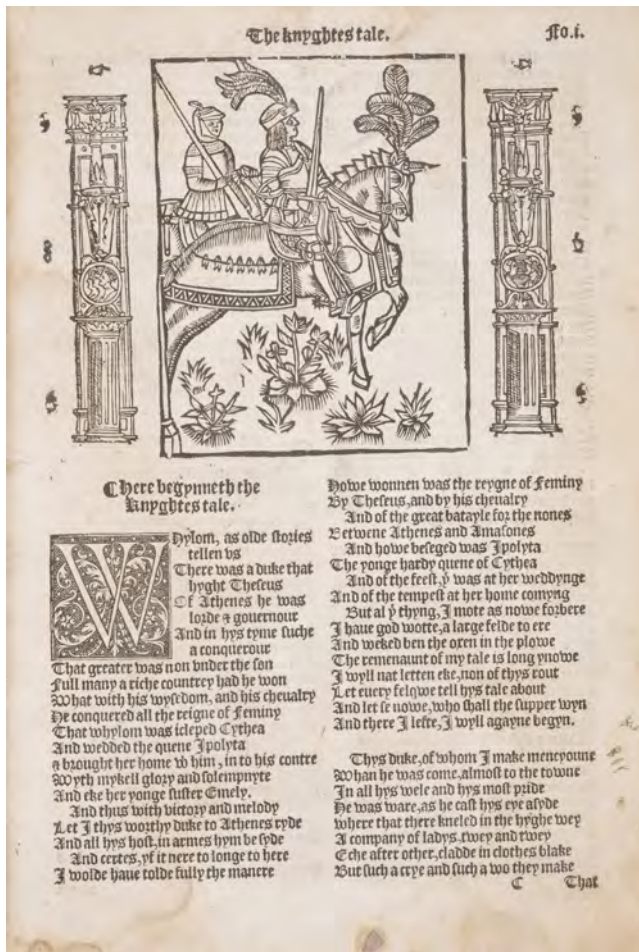 The knyghtes tale.
Fo.i.
¶Here begynneth the
knyghtes tale.
WHylom, as olde stories
tellen vs
There was a duke that
hyght Theseus
Of Athenes he was
lorde & gouernour
And in hys tyme suche
a conquerour
That greater was non vnder the son
Full many a riche countrey had he won
What with his wysedom, and his cheualry
He conquered all the reigne of Feminy
That whylom was icleped Cythea
And wedded the quene Ipolyta
& brought her home w him, in to his contre
Wyth mykell glory and solempnyte
And eke her yonge suster Emely.
And thus with victory and melody
Let I thys worthy duke to Athenes ryde
And all hys host, in armes hym be syde
And certes, yf it nere to longe to here
I wolde haue tolde fully the manere
Howe wonnen was the reygne of Feminy
By Theseus, and by his cheualry
And of the great batayle for the nones
Betwene Athenes and Amasones
And howe beseged was Ipolyta
The yonge hardy quene of Cythea
And of the feest, ẏ was at her weddynge
And of the tempest at her home comyng
But al ẏ thyng, I mote as nowe forbere
I haue god wotte, a large felde to ere
And weked ben the oxen in the plowe
The remenaunt of my tale is long ynowe
I wyll nat letten eke, non of thys rout
Let euery felowe tell hys tale about
And let se nowe, who shall the supper wyn
And there I lefte, I wyll agayne begyn.
Thys duke, of whom I make mencyoune
Whan he was come, almost to the towne
In all hys wele and hys most pride
He was ware, as he cast hys eye asyde
where that there kneled in the hyghe wey
A company of ladys, twey and twey
Eche after other, cladde in clothes blake
But such a crye and such a wo they make
C That